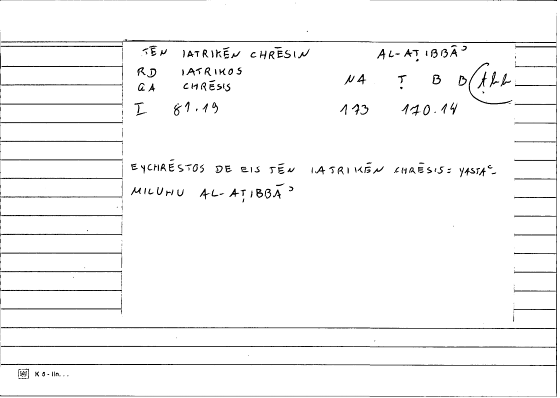 TĒN IATRIKĒN CHRĒSIN AL-AṬIBBĀʾ
RD IATRIKOS NA Ṭ B B
GA CHRĒSIS
I 81.19 173 170.14
EYCHRĒSTOS DE EIS TĒN IATRIKĒN CHRĒSIS: YASTAʿ-
MILUHU AL-AṬIBBĀʾ
K 6 - lin...